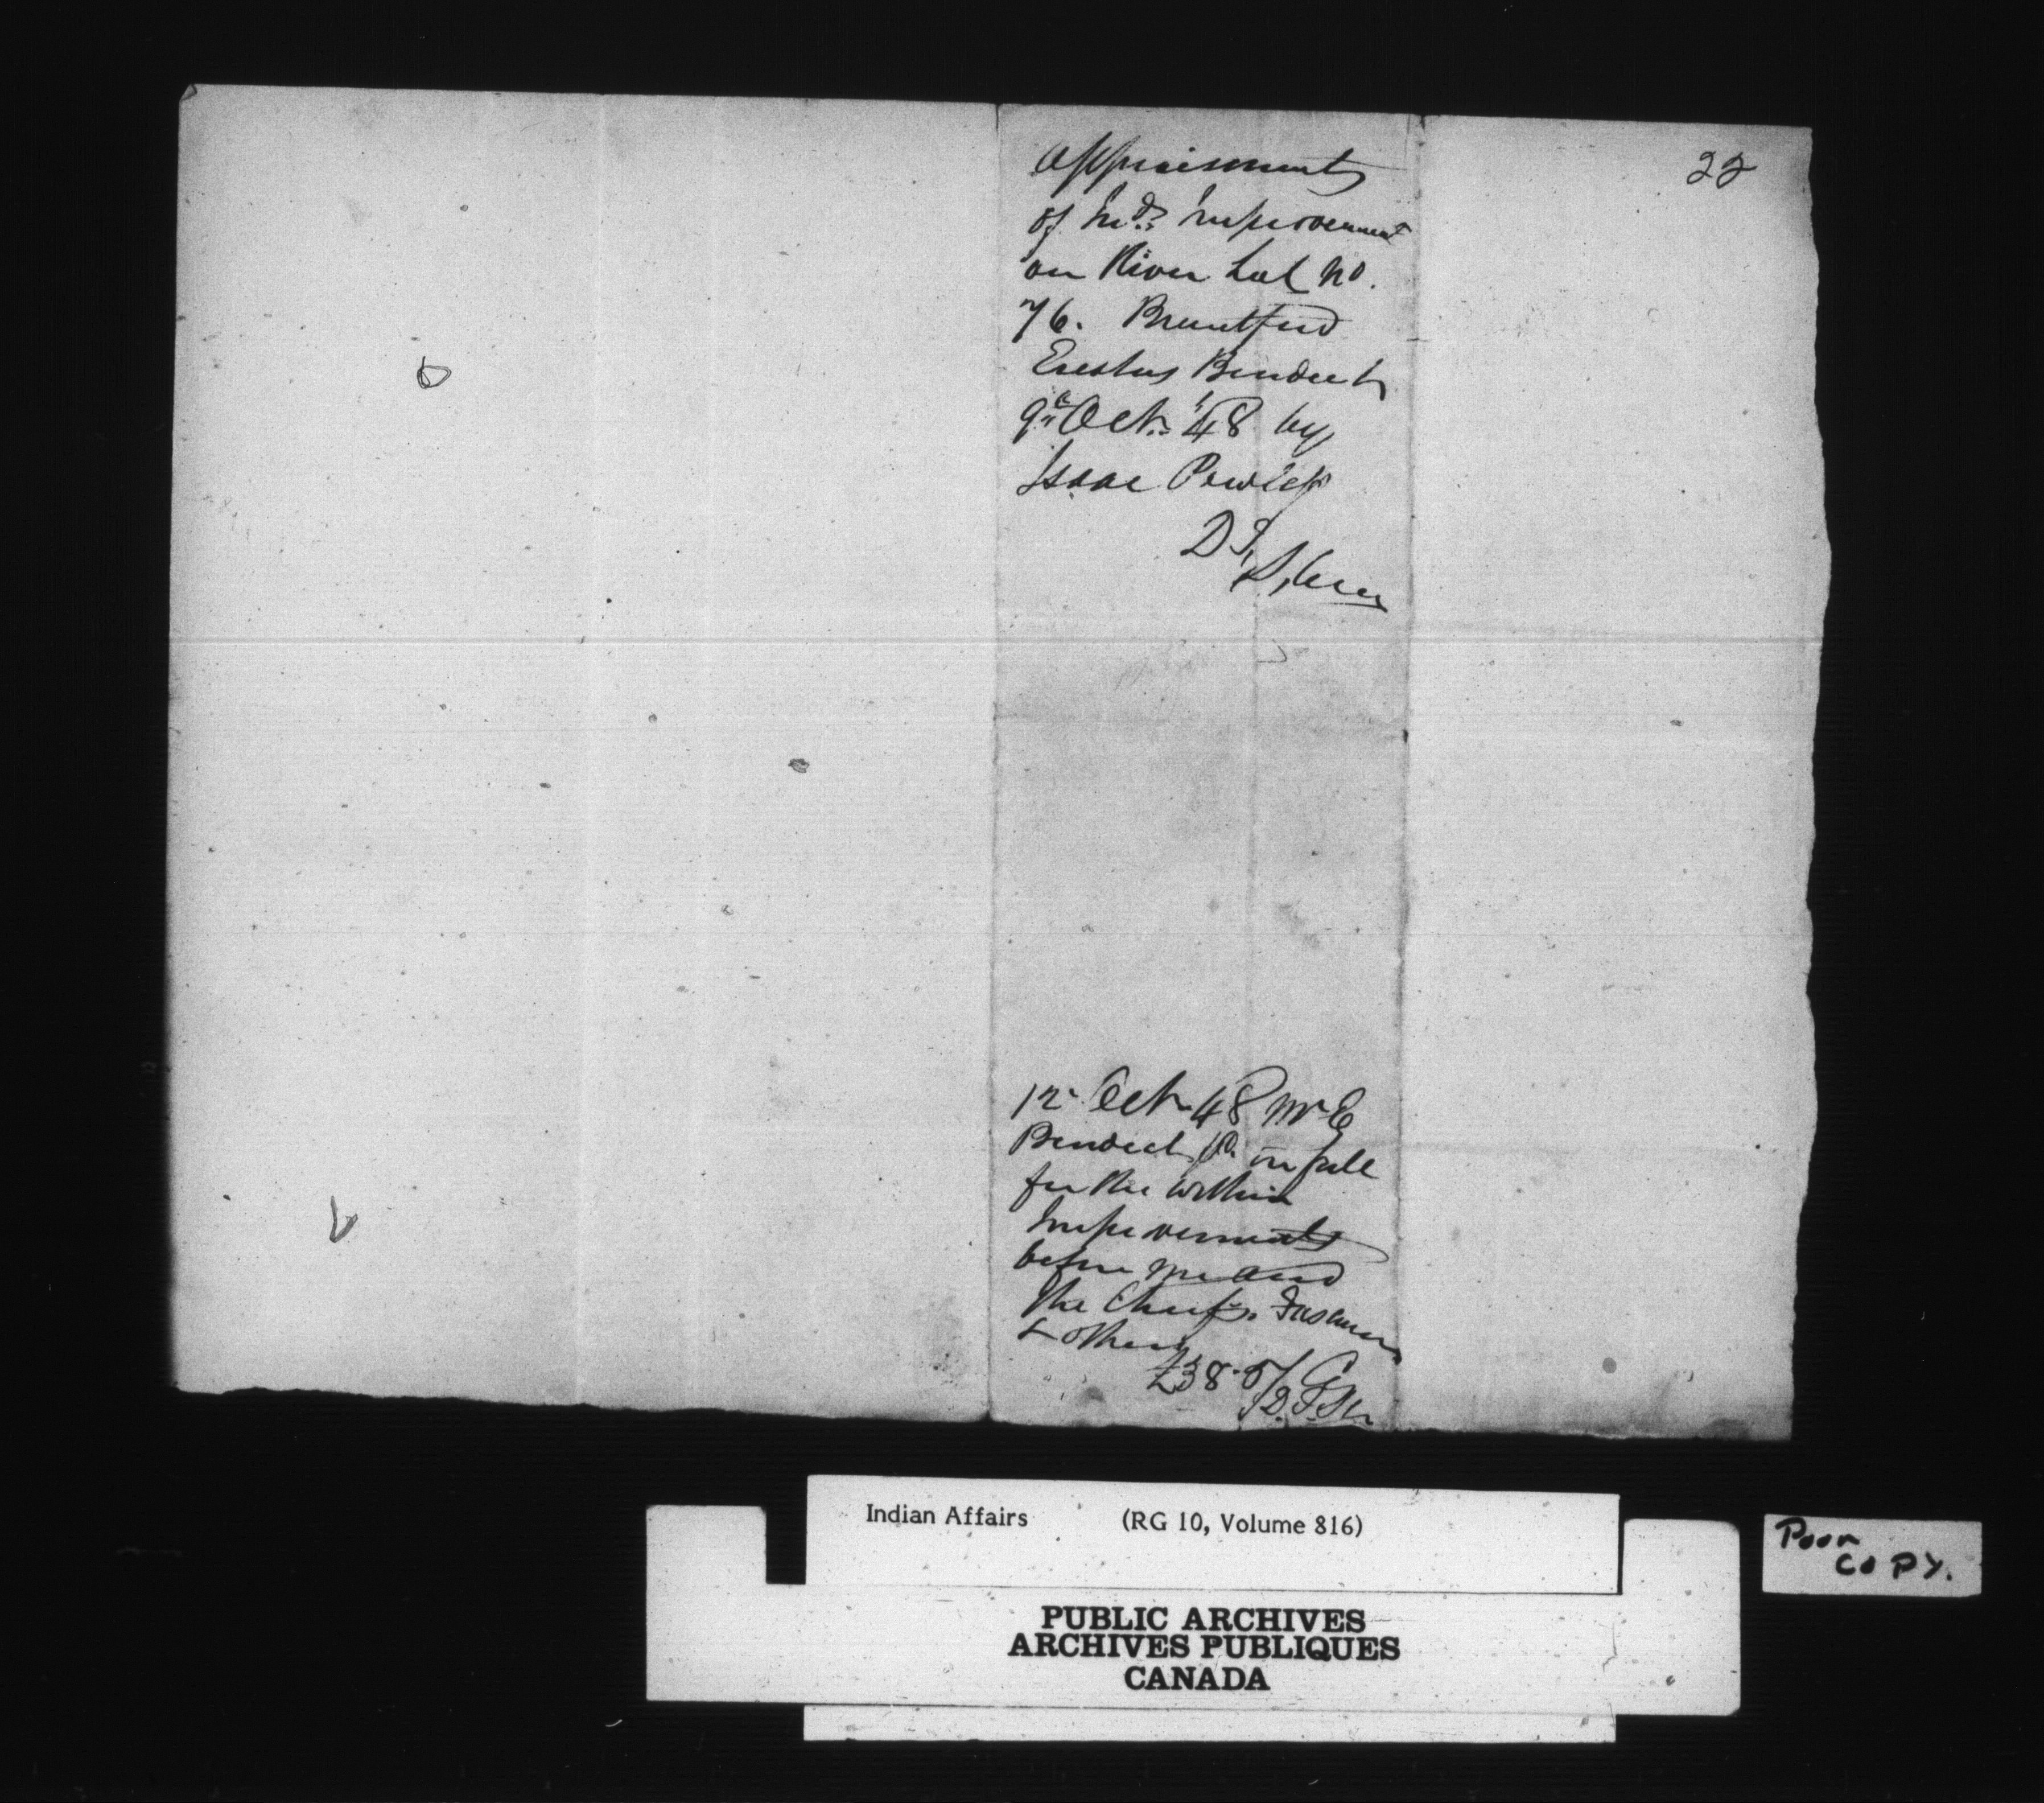 22
Appraisment
of Ind.? Improvement
on River Lot No.
76. Brantford
Erastus Benedect
9th Oct. '48 by
Isaac Powlef
12 Oct 48 Mr E
Benedect in full
for the within
Improvements
before me and
the Chiefs.
& others
£38.
Indian Affairs (RG 10, Volume 816)
Poor
COPY.
PUBLIC ARCHIVES
ARCHIVES PUBLIQUES
CANADA